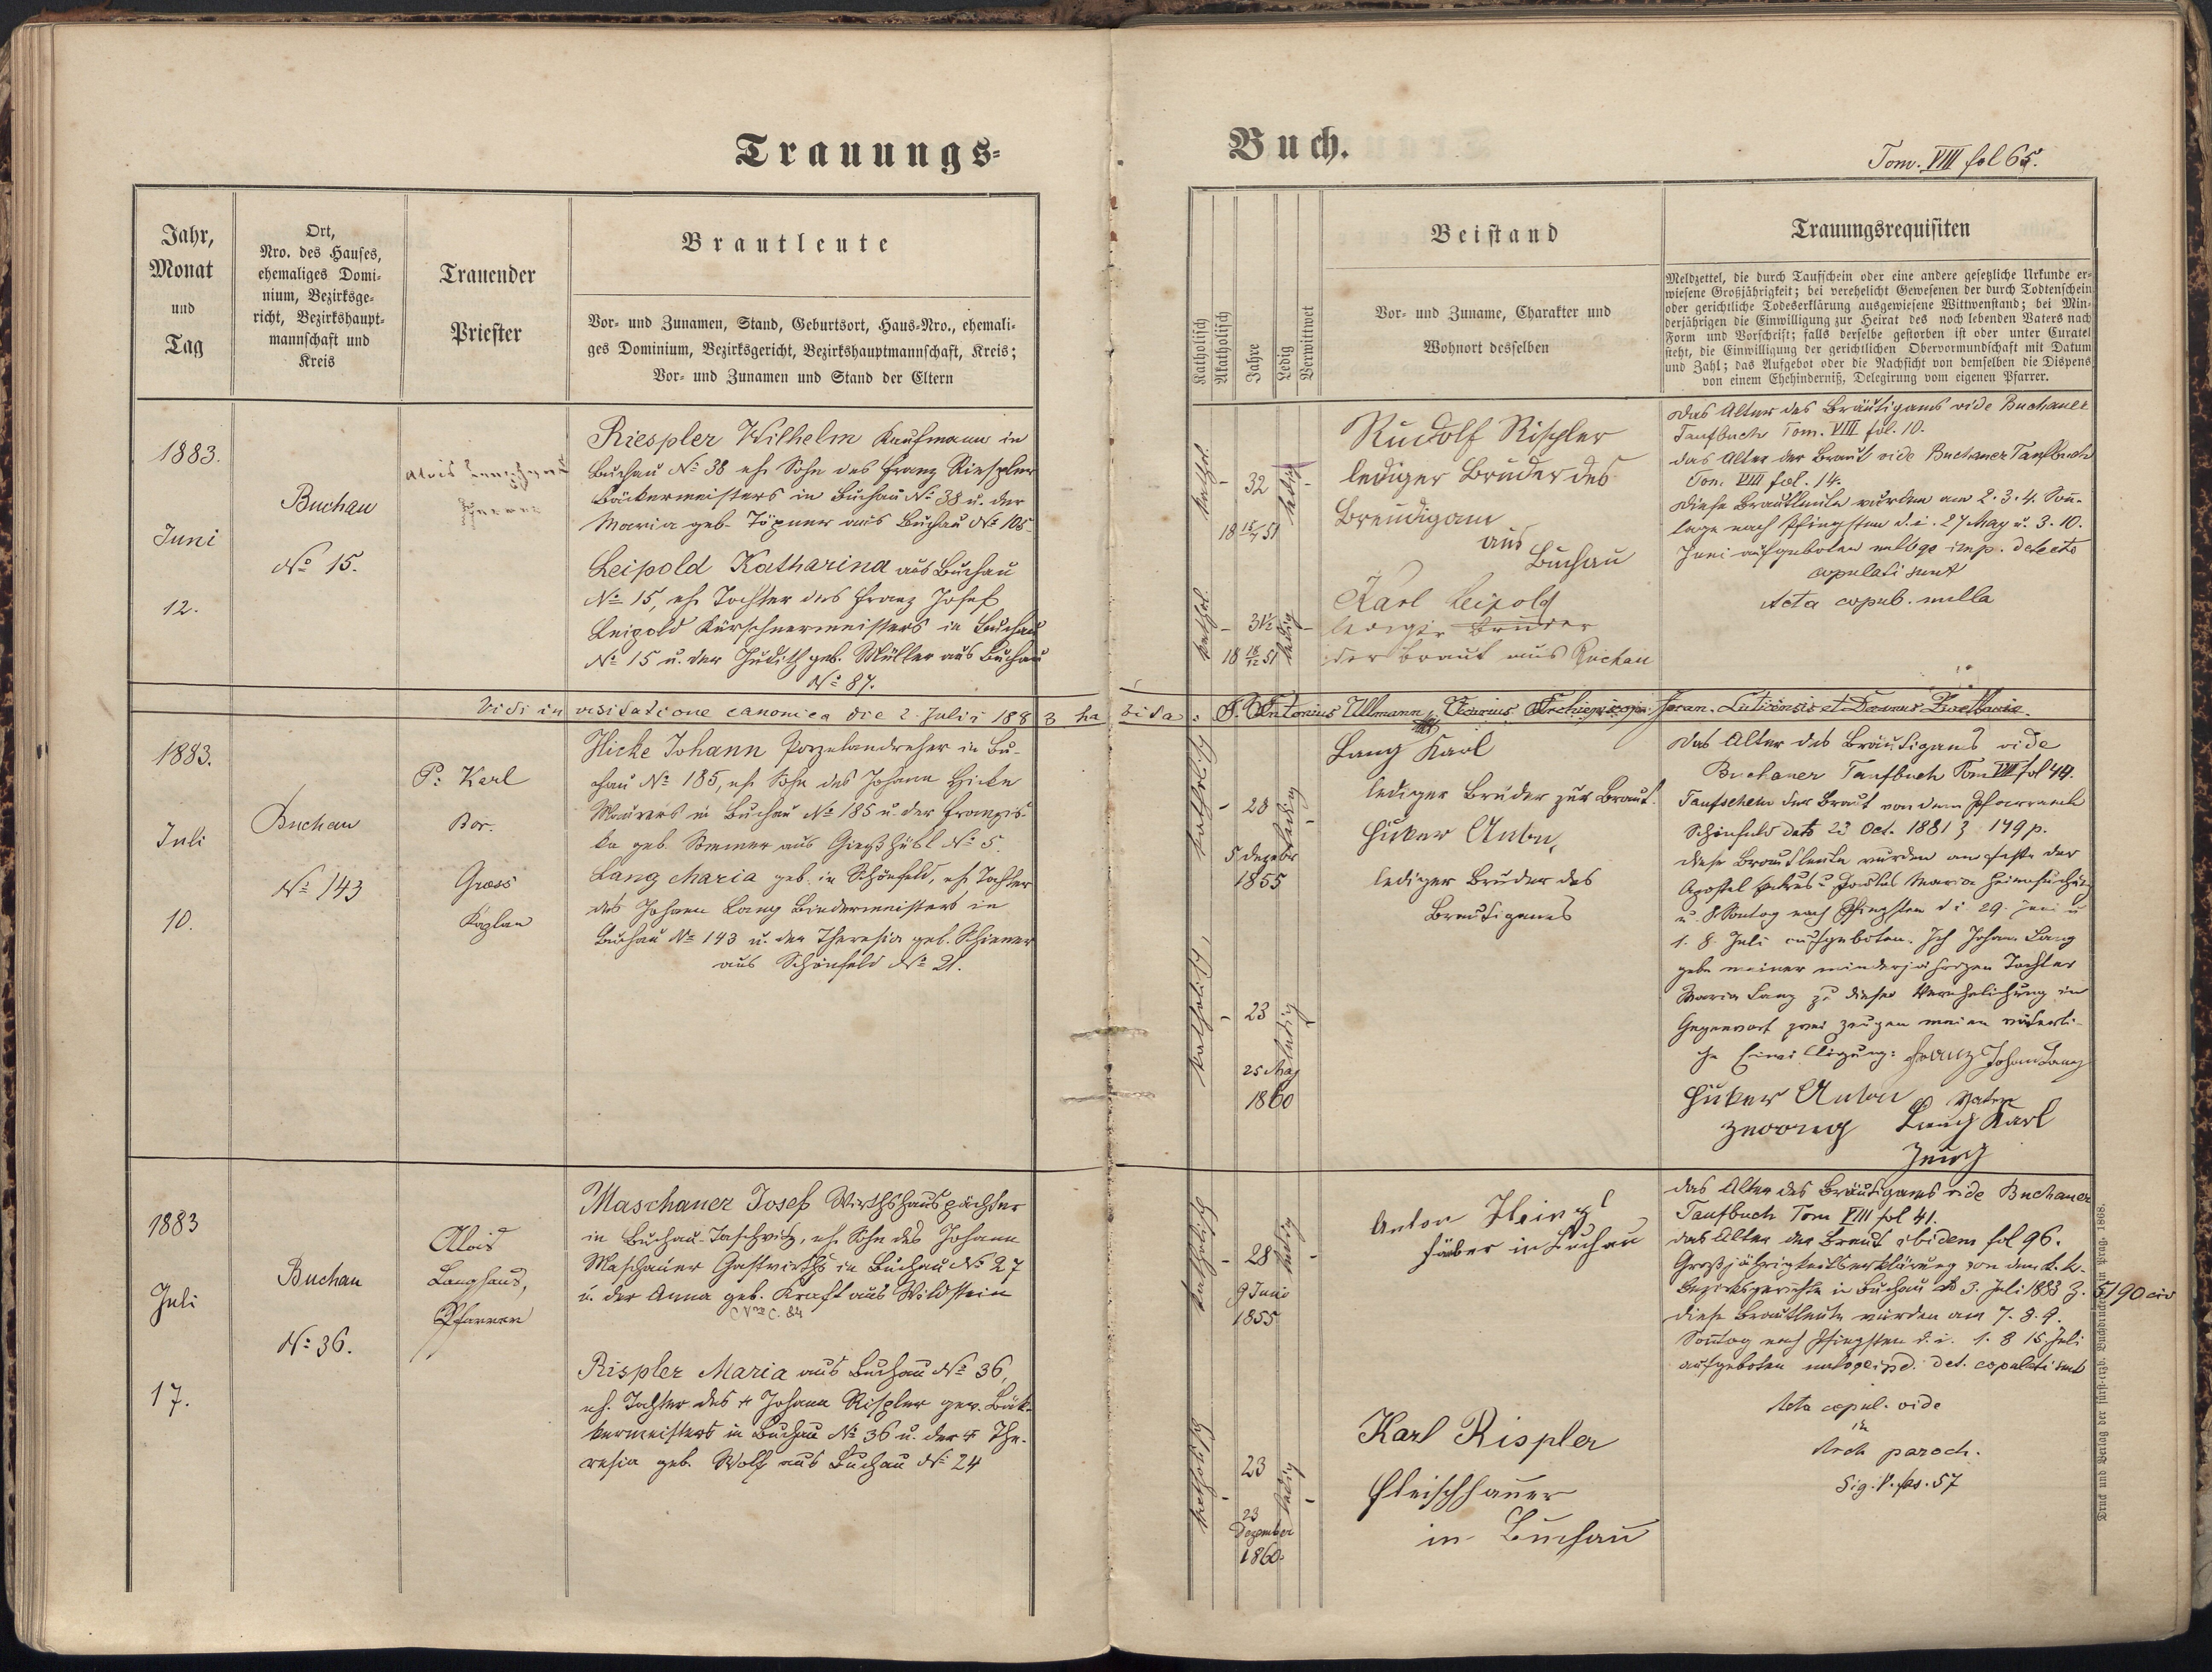 Trauungs-
Buch.
Tom. VIII fol 65.
Jahr,
Monat
und
Tag
Ort,
Nro. des Hauses,
ehemaliges Domi-
nium, Bezirksge-
richt, Bezirkshaupt-
mannschaft und
Kreis
Trauender
Priester
Brautleute
Vor- und Zunamen, Stand, Geburtsort, Haus-Nro., ehemali-
ges Dominium, Bezirksgericht, Bezirkshauptmannschaft, Kreis;
Vor- und Zunamen und Stand der Eltern
Katholisch
Akatholisch
Jahre
Ledig
Verwittwet
Beistand
Vor- und Zuname, Charakter und
Wohnort desselben
Trauungsrequisiten
Meldzettel, die durch Taufschein oder eine andere gesetzliche Urkunde er-
wiesene Großjährigkeit; bei verehelicht Gewesenen der durch Todtenschein
oder gerichtliche Todeserklärung ausgewiesene Wittwenstand; bei Min-
derjährigen die Einwilligung zur Heirat des noch lebenden Vaters nach
Form und Vorschrift; falls derselbe gestorben ist oder unter Curatel
steht, die Einwilligung der gerichtlichen Obervormundschaft mit Datum
und Zahl; das Aufgebot oder die Nachsicht von demselben die Dispens
von einem Ehehinderniß, Delegirung vom eigenen Pfarrer.
1883.
Juni
12.
Buchau
No 15.
Alois
Pfarrer
Riespler Wilhelm Kaufmann in
Buchau No 38 eh. Sohn des Franz Riespler
Bäckermeisters in Buchau No 38 u. der
Maria geb. Töpner aus Buchau No 105
Leipold Katharina aus Buchau
No 15, eh. Tochter des Franz Josef
Leipold Kürschnermeisters in Buchau
No 15 u. der Judith geb. Müller aus Buchau
No 87.
kathol.
32
18 15/7 51
ledig
kathol.
31½
18 18/12 51
ledig
Rudolf Rispler
lediger Bruder des
Breudigam
aus
Buchau
Karl Leipold
lediger Bruder
der Braut aus Buchau
Das Alter des Bräutigams vide Buchauer
Taufbuch Tom. VIII fol. 10.
das Alter der Braut vide Buchauer Taufbuch
Tom. VIII fol. 14.
Diese Brautleute wurden am 2. 3. 4. Son-
tage nach Pfingsten d. i. 27 May u. 3. 10.
Juni aufgeboten imp. detecto
copulati sunt
Acta copul. nulla
Vidi in visitatione canonica die 2 Julii 1883 habita: P. Antonius Ullmann, Vicarius
1883.
Juli
10.
Buchau
No 143
P. Karl
Bor.
Gross
Kaplan
Hicke Johann Porzelandreher in Bu-
chau No 185, eh. Sohn des Johann Hicke
Maurers in Buchau No 185 u. der Franzis-
ka geb. aus Gießhübl No 5.
Lang Maria geb. in Schönfeld, eh. Tochter
des Johann Lang Bindermeisters in
Buchau No 143 u. der Theresia geb. Schiener
aus Schönfeld No 21.
katholisch
28
5 Dezebr
1855
ledig
katholisch
23
25 May
1860
ledig
Lang Karl
lediger Bruder zur Braut.
Hicker Anton,
lediger Bruder des
Breutigams
Das Alter des Bräutigams vide
Buchauer Taufbuch Tom VIII fol 44.
Taufschein der Braut von dem Pfarramte
Schönfeld dato 23 Oct. 1881 Z 179 p.
diese Brautleute wurden am Feste der
Apostel Petrus u. Paulus Maria Heimsuchung
u. 8 Sontag nach Pfingsten d. i. 29. Juni u
1. 8. Juli aufgeboten. Ich Johann Lang
gebe meiner minderjährigen Tochter
Maria Lang zu dieser Verehelichung in
Gegenwart zwei Zeugen meine väterli-
che Einwilligung: Johann Lang
Hicker Anton Vater
Zeuge Lang Karl
Zeug
1883
Juli
17.
Buchau
No 36.
Alois
Langhans,
Pfarrer
Maschauer Josef Wirthshauspächter
in Buchau-Taschwitz, eh. Sohn des Johann
Maschauer Gastwirths in Buchau No 27
u. der Anna geb. Kraft aus Wildstein
Nro C. 84
Rispler Maria aus Buchau No 36,
eh. Tochter des + Johann Rispler gew. Bäk-
kermeisters in Buchau No 36 u. der + The-
resia geb. Wolf aus Buchau No 24
katholisch
28
9 Juni
1855
ledig
katholisch
23
23
Dezember
1860.
ledig
Anton Heinzl
Färber in Buchau
Karl Rispler
Fleischhauer
in Buchau
das Alter des Bräutigams vide Buchauer
Taufbuch Tom VIII fol 41.
das Alter der Braut ibidem fol 96.
Großjährigkeitserklärung von dem k. k.
Bezirksgerichte in Buchau dto 3. Juli 1883 Z. 5190 civ
diese Brautleute wurden am 7. 8. 9.
Sontag nach Pfingsten d. i. 1. 8 15 Juli
aufgeboten det. copulati sunt
Acta copul. vide
in
Arch paroch.
Sig. V. fas. 57
Druck und Verlag der fürst-erzb. Buchdruckerei in Prag. 1868.